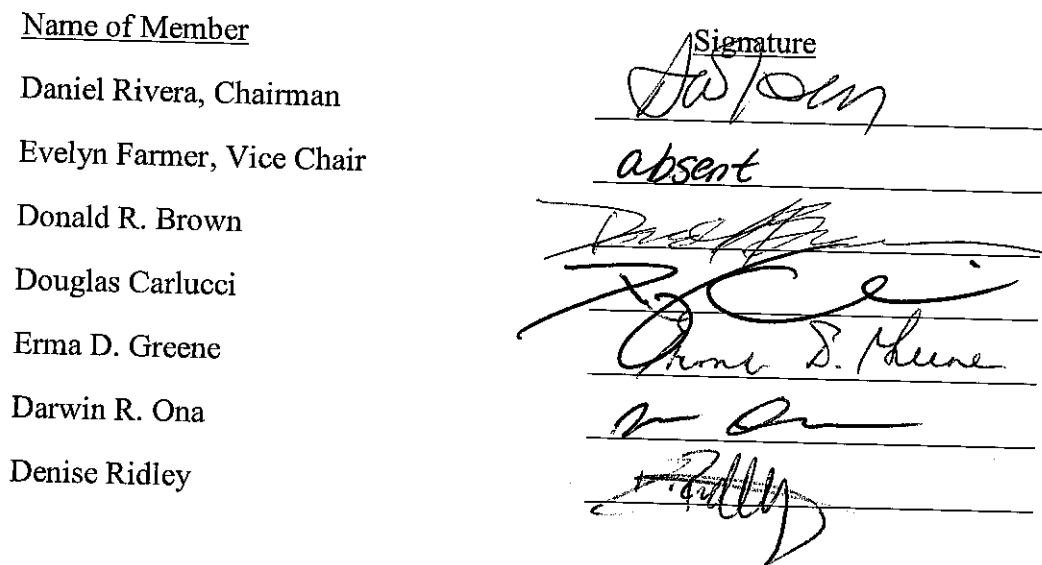 Name of Member Signature
Daniel Rivera, Chairman
Evelyn Farmer, Vice Chair absent
Donald R. Brown
Douglas Carlucci
Erma D. Greene Erma D. Greene
Darwin R. Ona
Denise Ridley